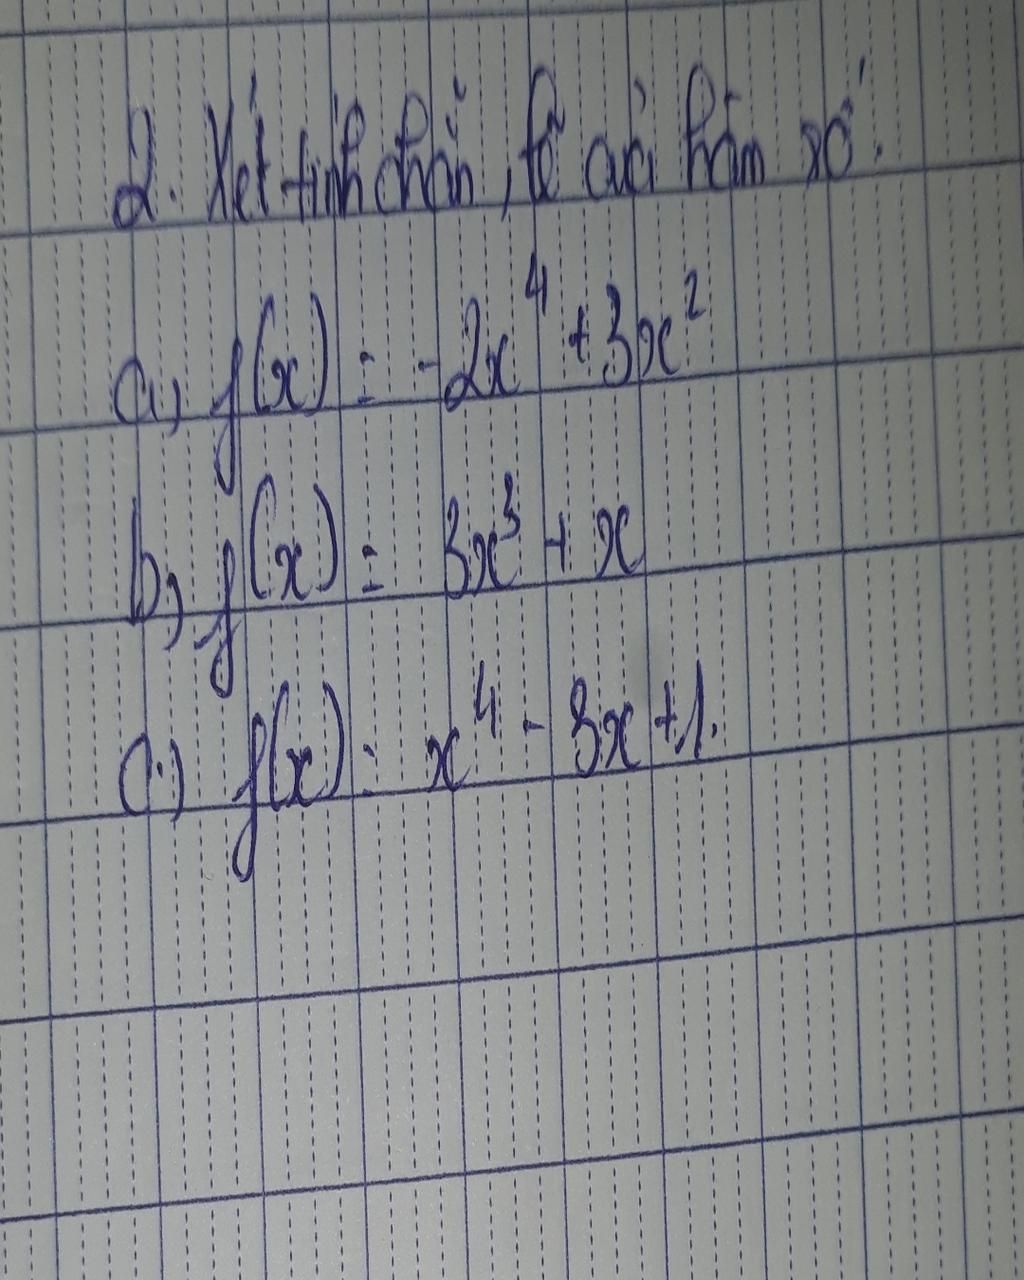 2. Xét tính chẵn, lẻ của hàm số.
a, f(x) = -2x⁴ + 3x²
b, f(x) = 3x³ + x
c.) f(x) = x⁴ - 3x + 1.